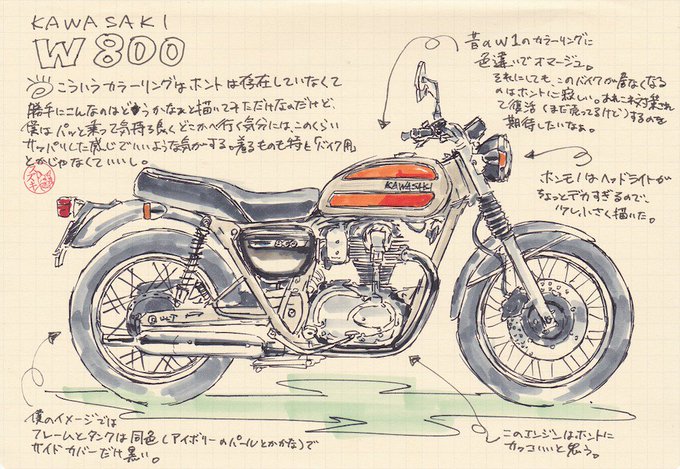 KAWASAKI
W800
こういうカラーリングはホントは存在していなくて
勝手にこんなのはどうかなぁと描いてみただけなのだけど、
僕はパッと乗って気持ち良くどこかへ行く気分には、このくらい
サッパリした感じでいいような気がする。着るものも特にバイク用
とかじゃなくていいし。
昔のW1のカラーリングに
色違いでオマージュ。
それにしても、このバイクが居なくなる
のはホントに寂しい。
て復活(まだ売ってるけど)するのを
期待したいなぁ。
ホンモノはヘッドライトが
ちょっとデカすぎるので、
小さく描いた。
KAWASAKI
800
僕のイメージでは
フレームとタンクは同色(アイボリーのパールとかかな)で
サイドカバーだけ黒い。
このエンジンはホントに
カッコいいと思う。